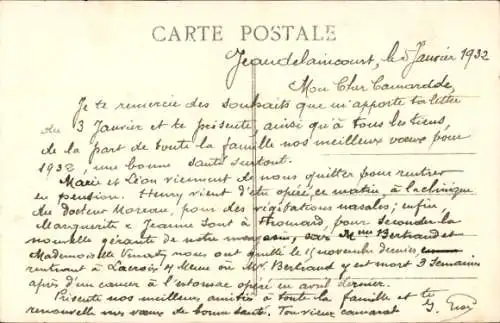 CARTE POSTALE
Jeandelaincourt, le 5 Janvier 1932
Mon Cher Camarade,
Je te remercie des souhaits que m'apporte ta lettre
du 3 Janvier et te présente, ainsi qu'à tous les tiens,
de la part de toute la famille nos meilleurs vœux pour
1932, une bonne santé surtout.
Marie et Léon viennent de nous quitter pour rentrer
en pension. Henry vient d'être opéré, ce matin, à la clinique
du docteur Moreau, pour des végétations nasales; enfin,
Marguerite & Jeanne sont à pour seconder la
nouvelle gérante de notre magasin, car Mme Bertrand et
Mademoiselle nous ont quitté le 15 novembre dernier,
rentrant à Lacroix s/ Meuse où Mr. Bertrand y est mort 3 semaines
après d'un cancer à l'estomac opéré en avril dernier.
Présente nos meilleures amitiés à toute la famille et te
renouvelle mes vœux de bonne santé. Ton vieux camarade